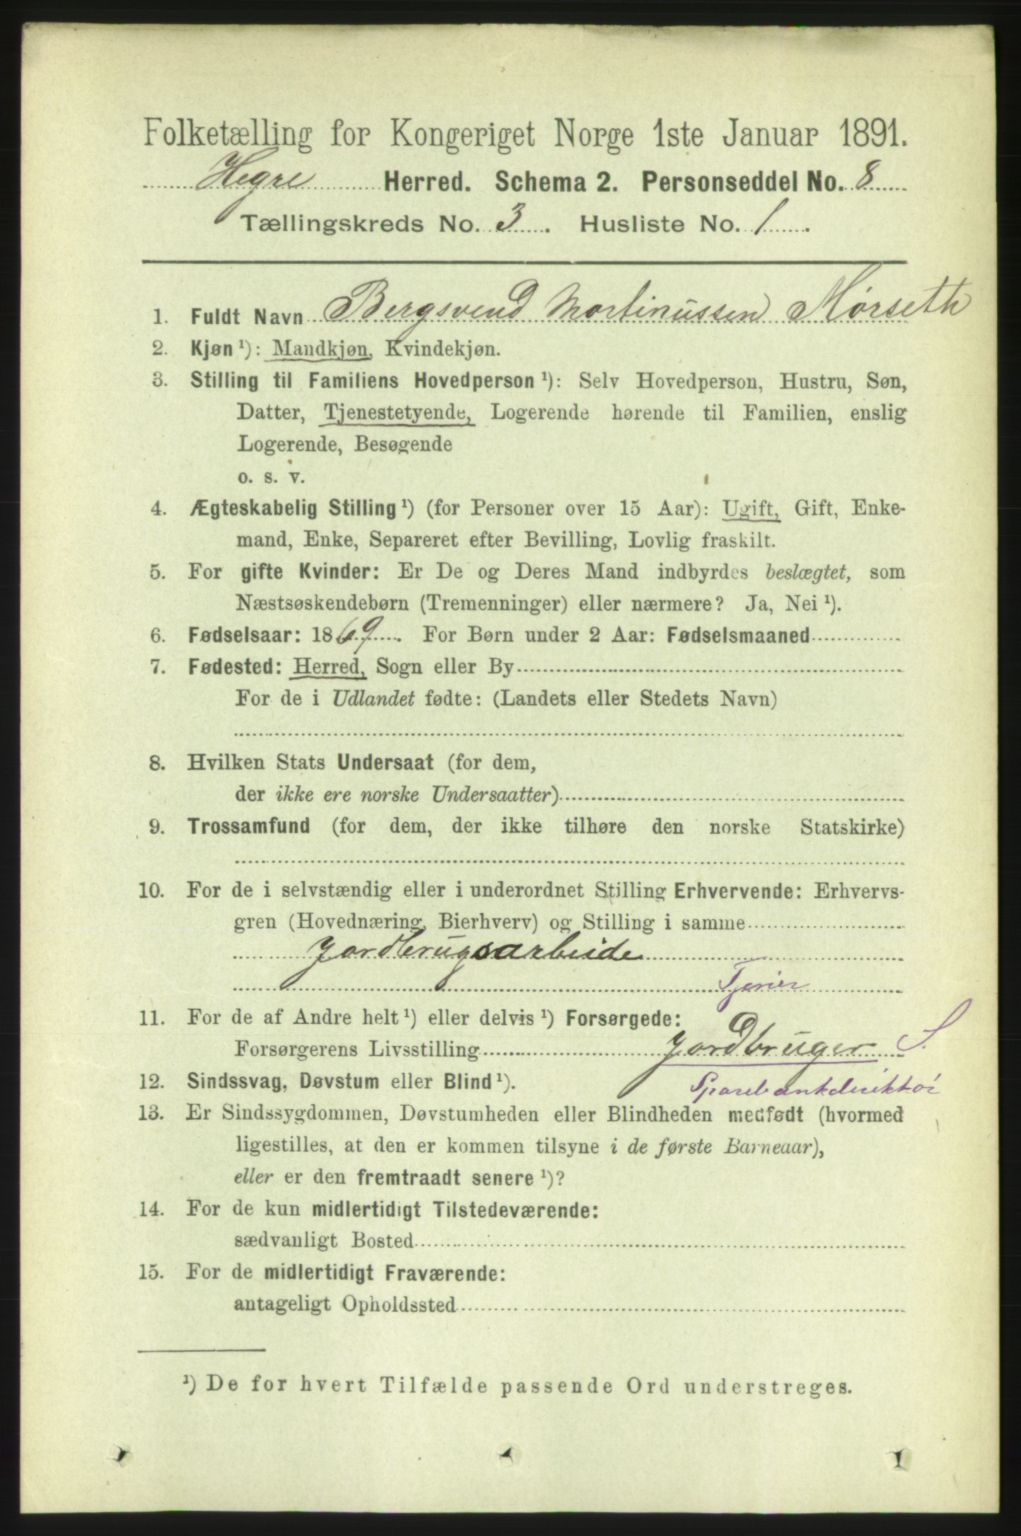 Folketælling for Kongeriget Norge 1ste Januar 1891.
Hegre Herred. Schema 2. Personseddel No. 8
Tællingskreds No. 3. Husliste No. 1.
1. Fuldt Navn Bergsvend Martinussen Mørseth
2. Kjøn ¹): Mandkjøn, Kvindekjøn.
3. Stilling til Familiens Hovedperson ¹): Selv Hovedperson, Hustru, Søn,
Datter, Tjenestetyende, Logerende hørende til Familien, enslig
Logerende, Besøgende
o. s. v.
4. Ægteskabelig Stilling ¹) (for Personer over 15 Aar): Ugift, Gift, Enke-
mand, Enke, Separeret efter Bevilling, Lovlig fraskilt.
5. For gifte Kvinder: Er De og Deres Mand indbyrdes beslægtet, som
Næstsøskendebørn (Tremenninger) eller nærmere? Ja, Nei ¹).
6. Fødselsaar: 1869. For Børn under 2 Aar: Fødselsmaaned
7. Fødested: Herred, Sogn eller By
For de i Udlandet fødte: (Landets eller Stedets Navn)
8. Hvilken Stats Undersaat (for dem,
der ikke ere norske Undersaatter)
9. Trossamfund (for dem, der ikke tilhøre den norske Statskirke)
10. For de i selvstændig eller i underordnet Stilling Erhvervende: Erhvervs-
gren (Hovednæring, Bierhverv) og Stilling i samme
Jordbrugsarbeide
11. For de af Andre helt ¹) eller delvis ¹) Forsørgede:
Forsørgerens Livsstilling Jordbruger S.
12. Sindssvag, Døvstum eller Blind ¹). Sparebankdirektør
13. Er Sindssygdommen, Døvstumheden eller Blindheden medfødt (hvormed
ligestilles, at den er kommen tilsyne i de første Barneaar),
eller er den fremtraadt senere ¹)?
14. For de kun midlertidigt Tilstedeværende:
sædvanligt Bosted
15. For de midlertidigt Fraværende:
antageligt Opholdssted
¹) De for hvert Tilfælde passende Ord understreges.